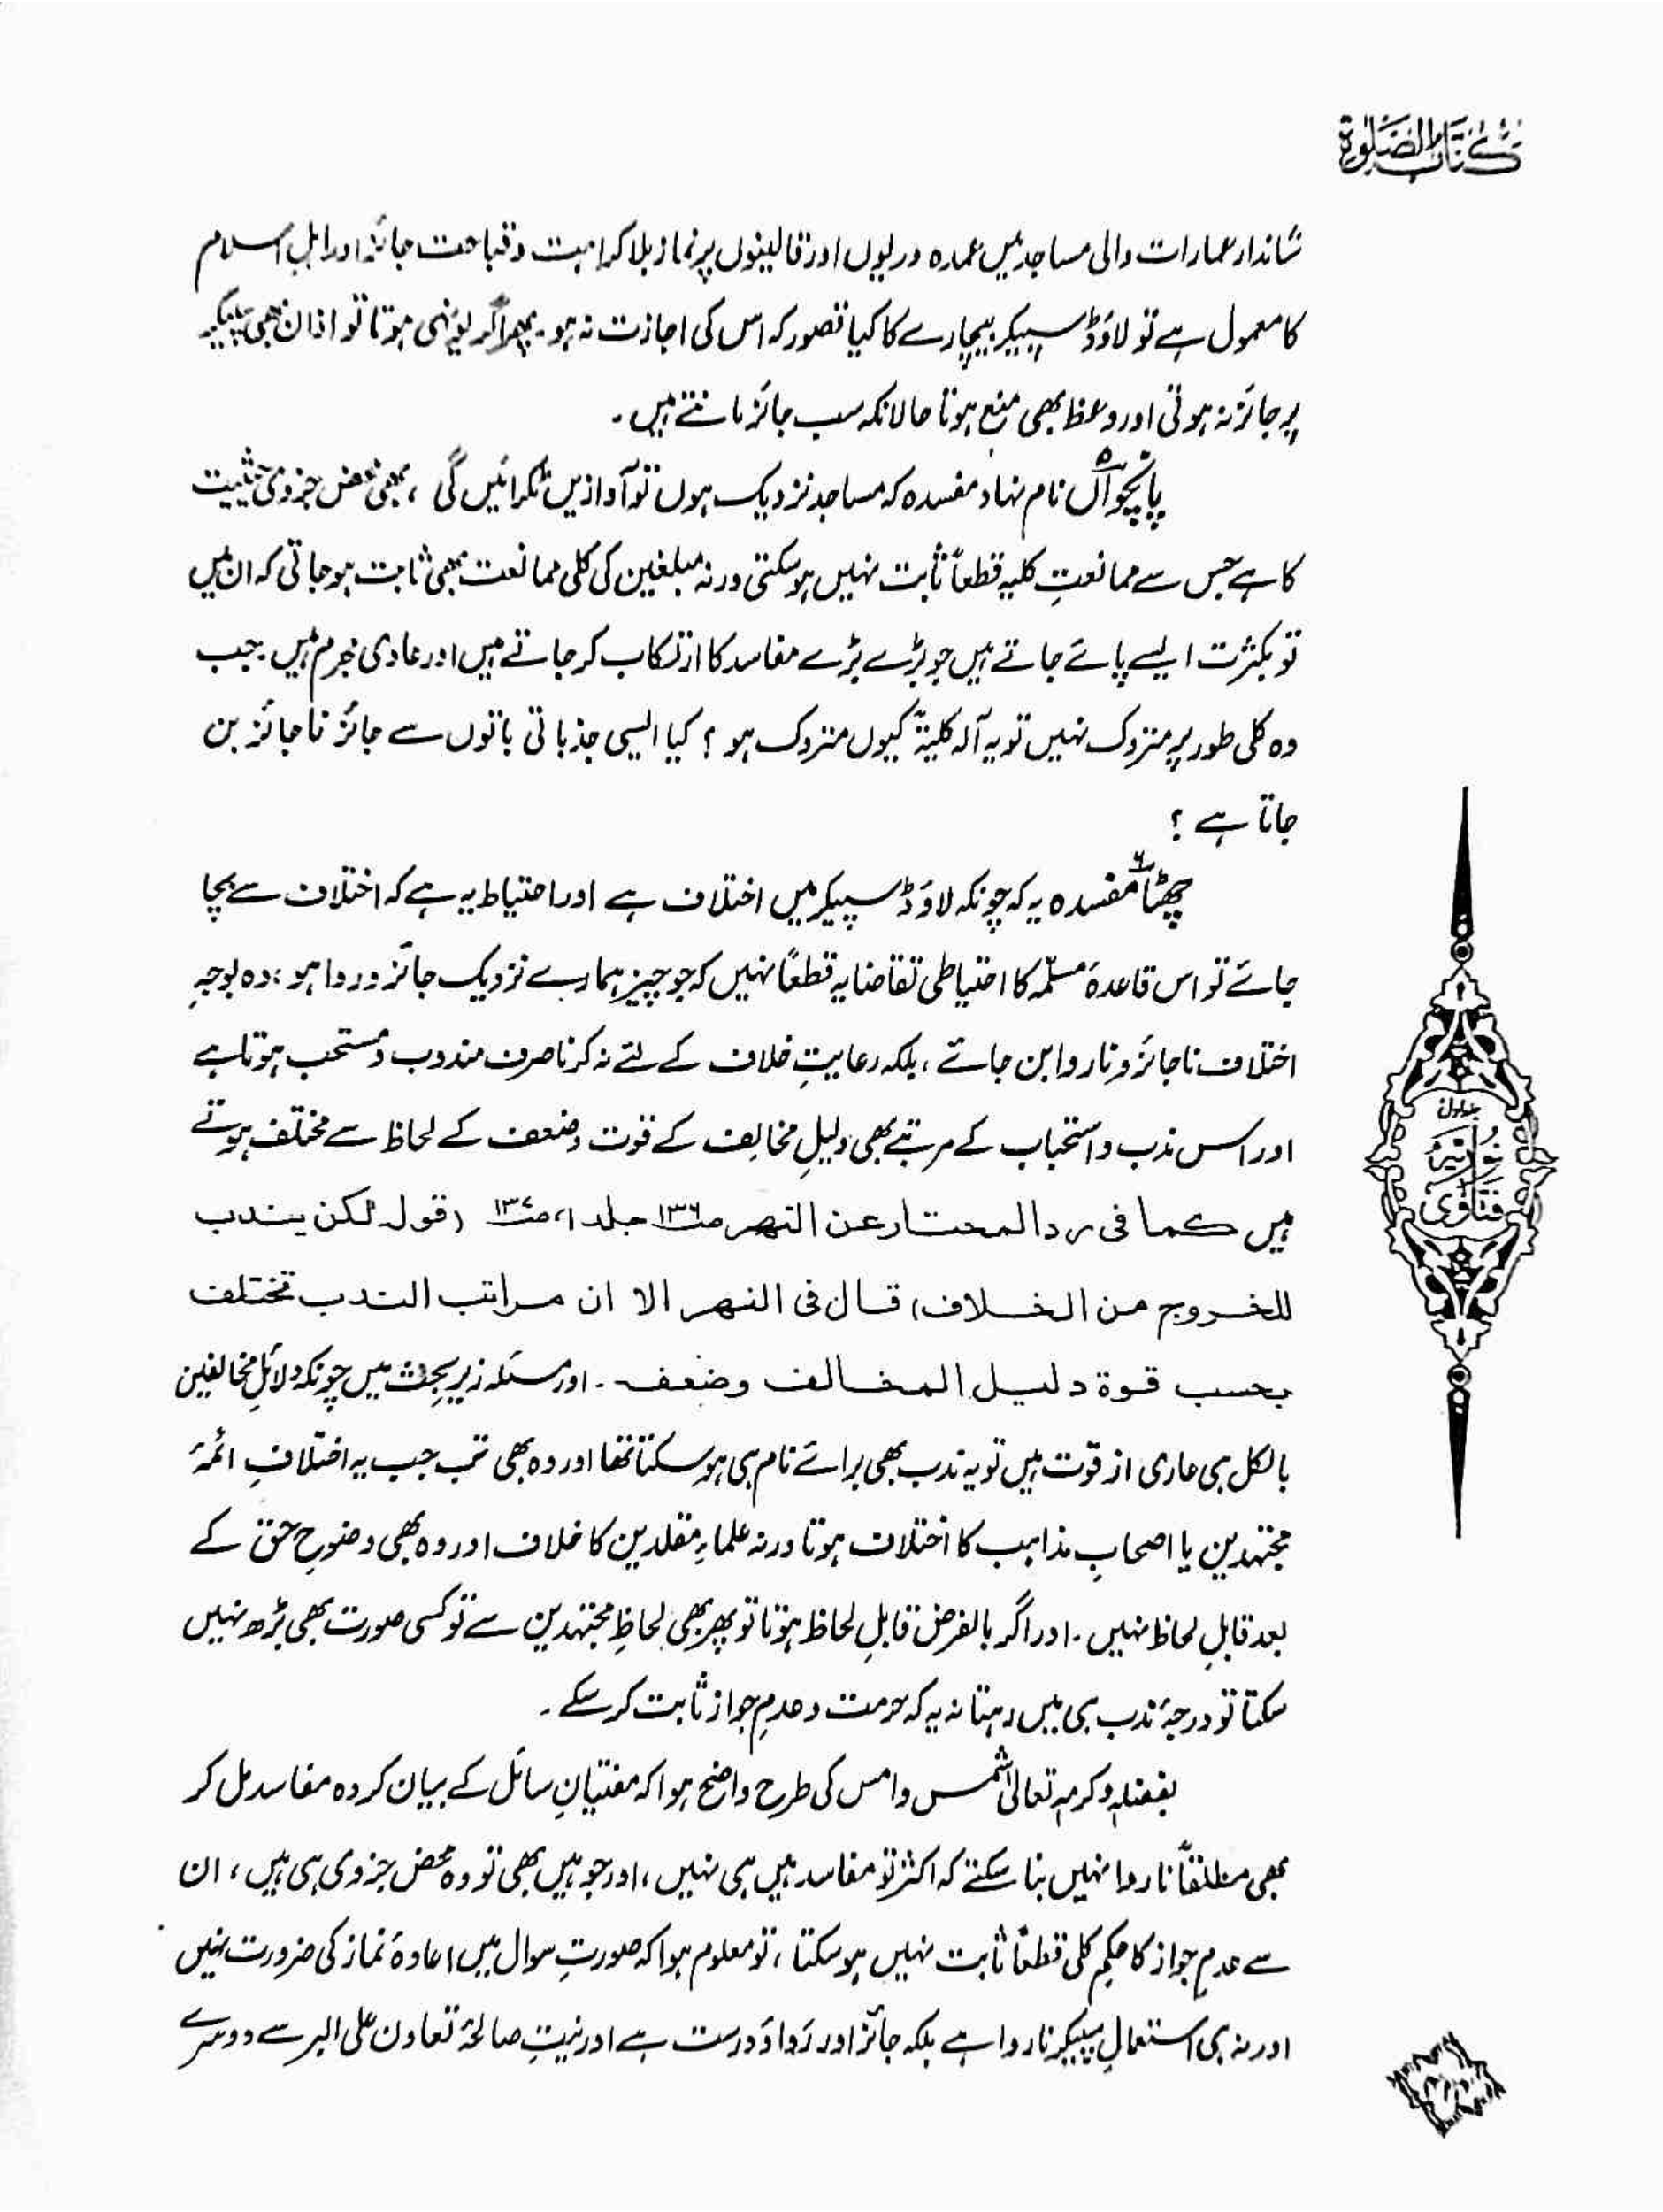 كتاب الصلوة
شاندار عمارات والی مساجد میں عمدہ دریوں اور قالینوں پر نماز بلا کراہت و قباحت جائز اور اہلِ اسلام
کا معمول ہے تو لاؤڈ سپیکر بیچارے کا کیا تصور کہ اس کی اجازت نہ ہو۔ پھر اگر یونہی ہوتا تو اذان بھی سپیکر
پر جائز نہ ہوتی اور وعظ بھی منع ہوتا حالانکہ سب جائز مانتے ہیں۔
پانچواں۵ نام نہاد مفسدہ کہ مساجد نزدیک ہوں تو آوازیں ٹکرائیں گی، بھی محض جزوی حیثیت
کا ہے جس سے ممانعتِ کلیہ قطعاً ثابت نہیں ہو سکتی ورنہ مبلغین کی کلی ممانعت بھی ثابت ہو جاتی کہ ان میں
تو بکثرت ایسے پائے جاتے ہیں جو بڑے بڑے مفاسد کا ارتکاب کر جاتے ہیں اور عادی مجرم ہیں۔ جب
وہ کلی طور پر متروک نہیں تو یہ آلہ کلیۃً کیوں متروک ہو ؟ کیا ایسی جذباتی باتوں سے جائز ناجائز بن
جاتا ہے ؟
چھٹا۶ مفسدہ یہ کہ چونکہ لاؤڈ سپیکر میں اختلاف ہے اور احتیاط یہ ہے کہ اختلاف سے بچا
جائے تو اس قاعدۂ مسلّمہ کا احتیاطی تقاضا یہ قطعًا نہیں کہ جو چیز ہمارے نزدیک جائز و روا ہو، وہ بوجہِ
اختلاف ناجائز و ناروا بن جائے، بلکہ رعایتِ خلاف کے لئے نہ کرنا صرف مندوب و مستحب ہوتا ہے
اور اس ندب و استحباب کے مرتبے بھی دلیلِ مخالف کے قوت و ضعف کے لحاظ سے مختلف ہوتے
ہیں کما فی رد المحتار عن النھر ص۱۳۶ جلد ۱، ص۱۳۷ (قولہ لکن یندب
للخروج من الخلاف) قال فی النھر الا ان مراتب الندب تختلف
بحسب قوة دلیل المخالف وضعفہ۔ اور مسئلہ زیرِ بحث میں چونکہ دلائلِ مخالفین
بالکل ہی عاری از قوت ہیں تو یہ ندب بھی برائے نام ہی ہو سکتا تھا اور وہ بھی تب جب یہ اختلافِ ائمۂ
مجتہدین یا اصحابِ مذاہب کا اختلاف ہوتا ورنہ علماءِ مقلدین کا خلاف اور وہ بھی وضوحِ حق کے
بعد قابلِ لحاظ نہیں۔ اور اگر بالفرض قابلِ لحاظ ہوتا تو پھر بھی لحاظِ مجتہدین سے تو کسی صورت بھی بڑھ نہیں
سکتا تو درجۂ ندب ہی میں رہتا نہ یہ کہ حرمت و عدمِ جواز ثابت کر سکے۔
بفضلہٖ و کرمہٖ تعالیٰ شمس و امس کی طرح واضح ہوا کہ مفتیانِ سائل کے بیان کردہ مفاسد مل کر
بھی مطلقاً ناروا نہیں بنا سکتے کہ اکثر تو مفاسد ہیں ہی نہیں، اور جو ہیں بھی تو وہ محض جزوی ہی ہیں، ان
سے عدمِ جواز کا حکمِ کلی قطعاً ثابت نہیں ہو سکتا، تو معلوم ہوا کہ صورتِ سوال میں اعادۂ نماز کی ضرورت نہیں
اور نہ ہی استعمالِ سپیکر ناروا ہے بلکہ جائز اور رَوا وَ درست ہے اور نیتِ صالحۂ تعاون علی البر سے دوسرے
جلد اول
نوریہ
فتاویٰ